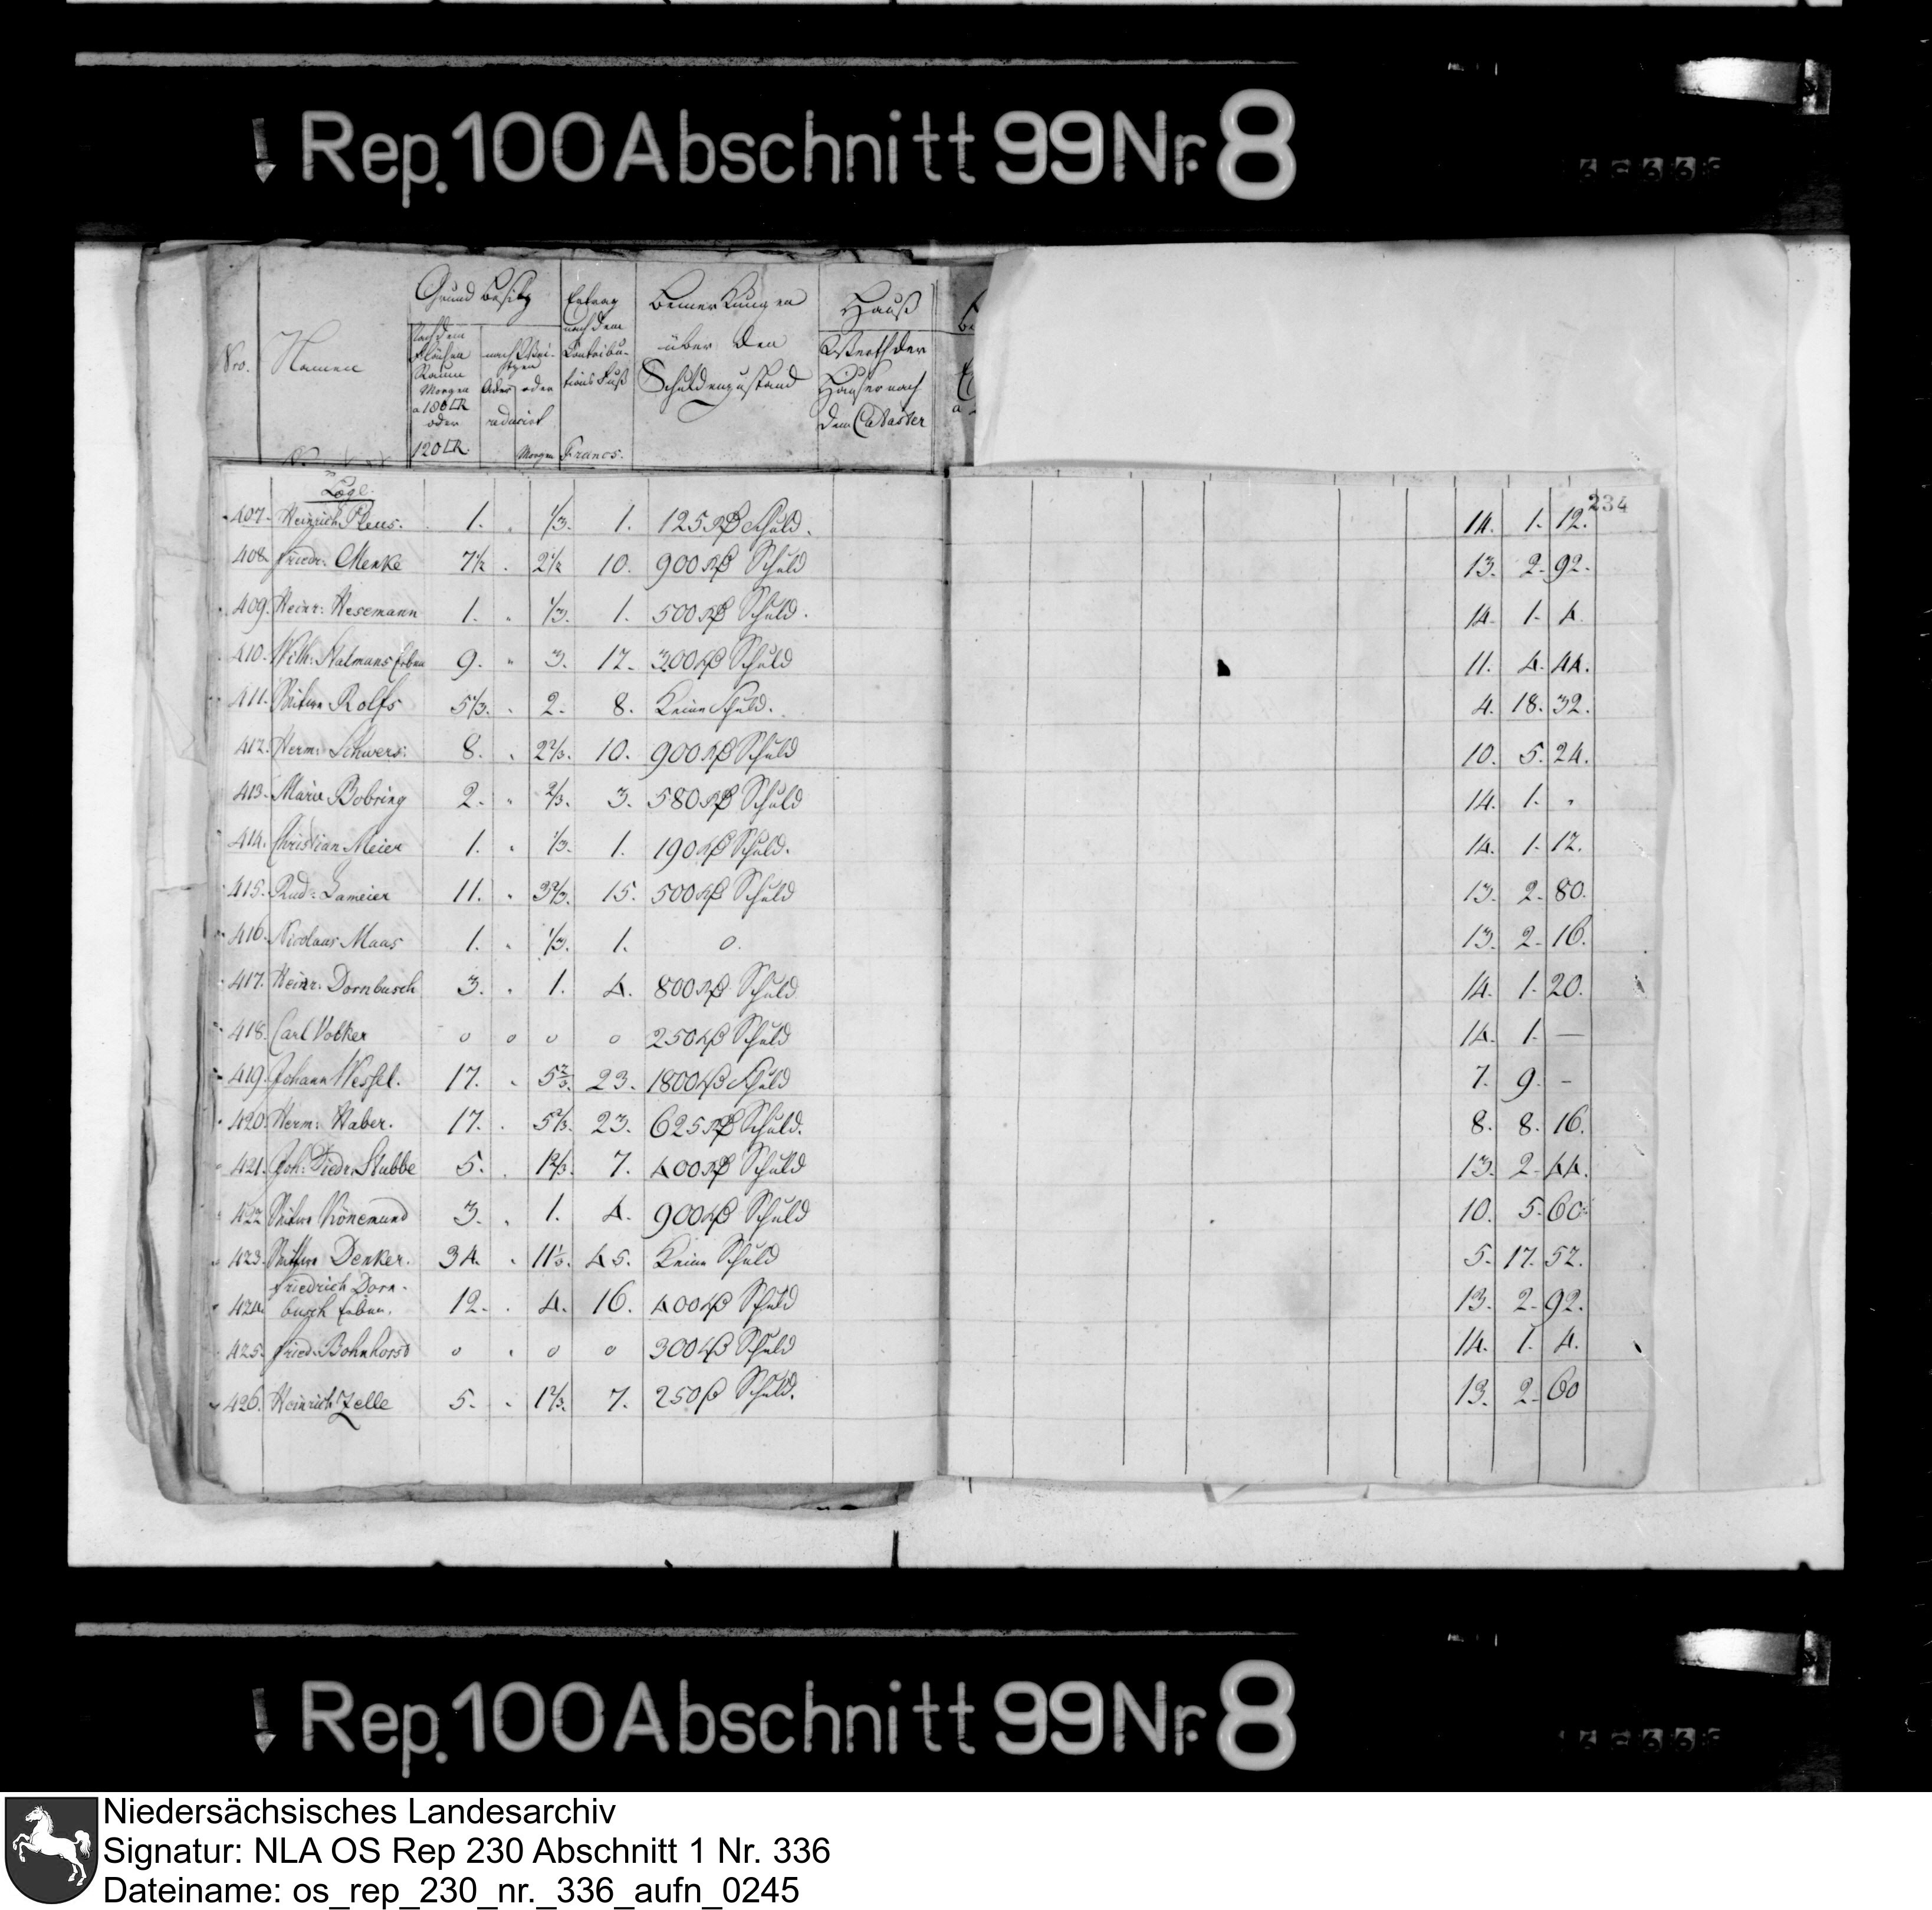 Rep. 100 Abschnitt 99 Nr. 8
Nro. Namen Grund Besitz Ertrag nach dem Contribu- tions Fuß Francs. Bemerkungen über den Schuldenzustand Hauß Werth der Häuser nach dem Cataster
Nach dem Flächen Raum Morgen a 180 □R oder 120 □R.
oder reducirt Morgen
234
Loge
407. Heinrich Pleus. 1. " 1/3. 1. 125 Rß Schuld. 14. 1. 12.
408. Friedr: Menke 7 1/2 . 2 1/2 10. 900 Rß Schuld 13. 2. 92.
409. Heinr: Hesemann 1. " 1/3. 1. 500 Rß Schuld. 14. 1. 4.
410. Wilh: Stalmans Erben 9. " 3. 12. 300 Rß Schuld 11. 4. 44.
411. Wittwe Rolfs 5 1/3. . 2. 8. Keine Schuld. 4. 18. 32.
412. Herm: Schwers: 8. . 2 2/3. 10. 900 Rß Schuld 10. 5. 24.
413. Marie Bobring 2. " 2/3. 3. 580 Rß Schuld 14. 1. "
414. Christian Meier 1. " 1/3. 1. 190 Rß Schuld. 14. 1. 12.
415. Rud: Lameier 11. " 3 2/3. 15. 500 Rß Schuld 13. 2. 80.
416. Nicolaus Maas 1. " 1/3. 1. 0. 13. 2. 16.
417. Heinr: Dornbusch 3. . 1. 4. 800 Rß Schuld 14. 1. 20.
418. Carl Volker 0 0 0 0 250 Rß Schuld 14. 1. —
419. Johann Wessel. 17. " 5 2/3. 23. 1800 Rß Schuld 7. 9. –
420. Herm: Haber. 17. . 5 2/3. 23. 625 Rß Schuld. 8. 8. 16.
421. Joh: Diedr: Stubbe 5. . 1 2/3. 7. 400 Rß Schuld 13. 2. 44.
422 Wittwe Könemund 3. . 1. 4. 900 Rß Schuld 10. 5. 60.
423. Wittwe Denker. 34. " 11 1/3. 45. Keine Schuld 5. 17. 52.
Friedrich Dorn-
424. busch Erben. 12. . 4. 16. 400 Rß Schuld 13. 2. 92.
425. Fried: Bohnhorst 0 . 0 0 300 Rß Schuld 14. 1. 4.
426. Heinrich Zelle 5. . 1 2/3. 7. 250 ß Schuld. 13. 2. 60
Rep. 100 Abschnitt 99 Nr. 8
Niedersächsisches Landesarchiv
Signatur: NLA OS Rep 230 Abschnitt 1 Nr. 336
Dateiname: os_rep_230_nr._336_aufn_0245